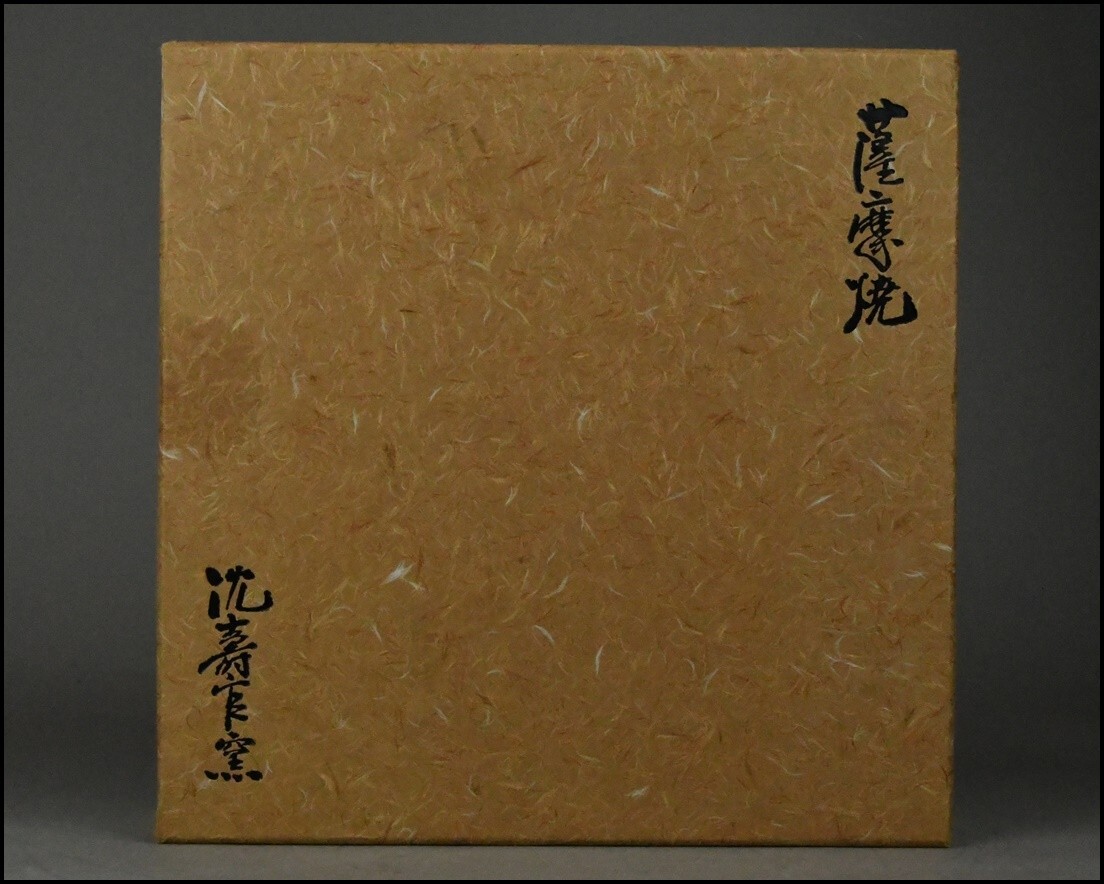 薩摩焼
沈壽官窯